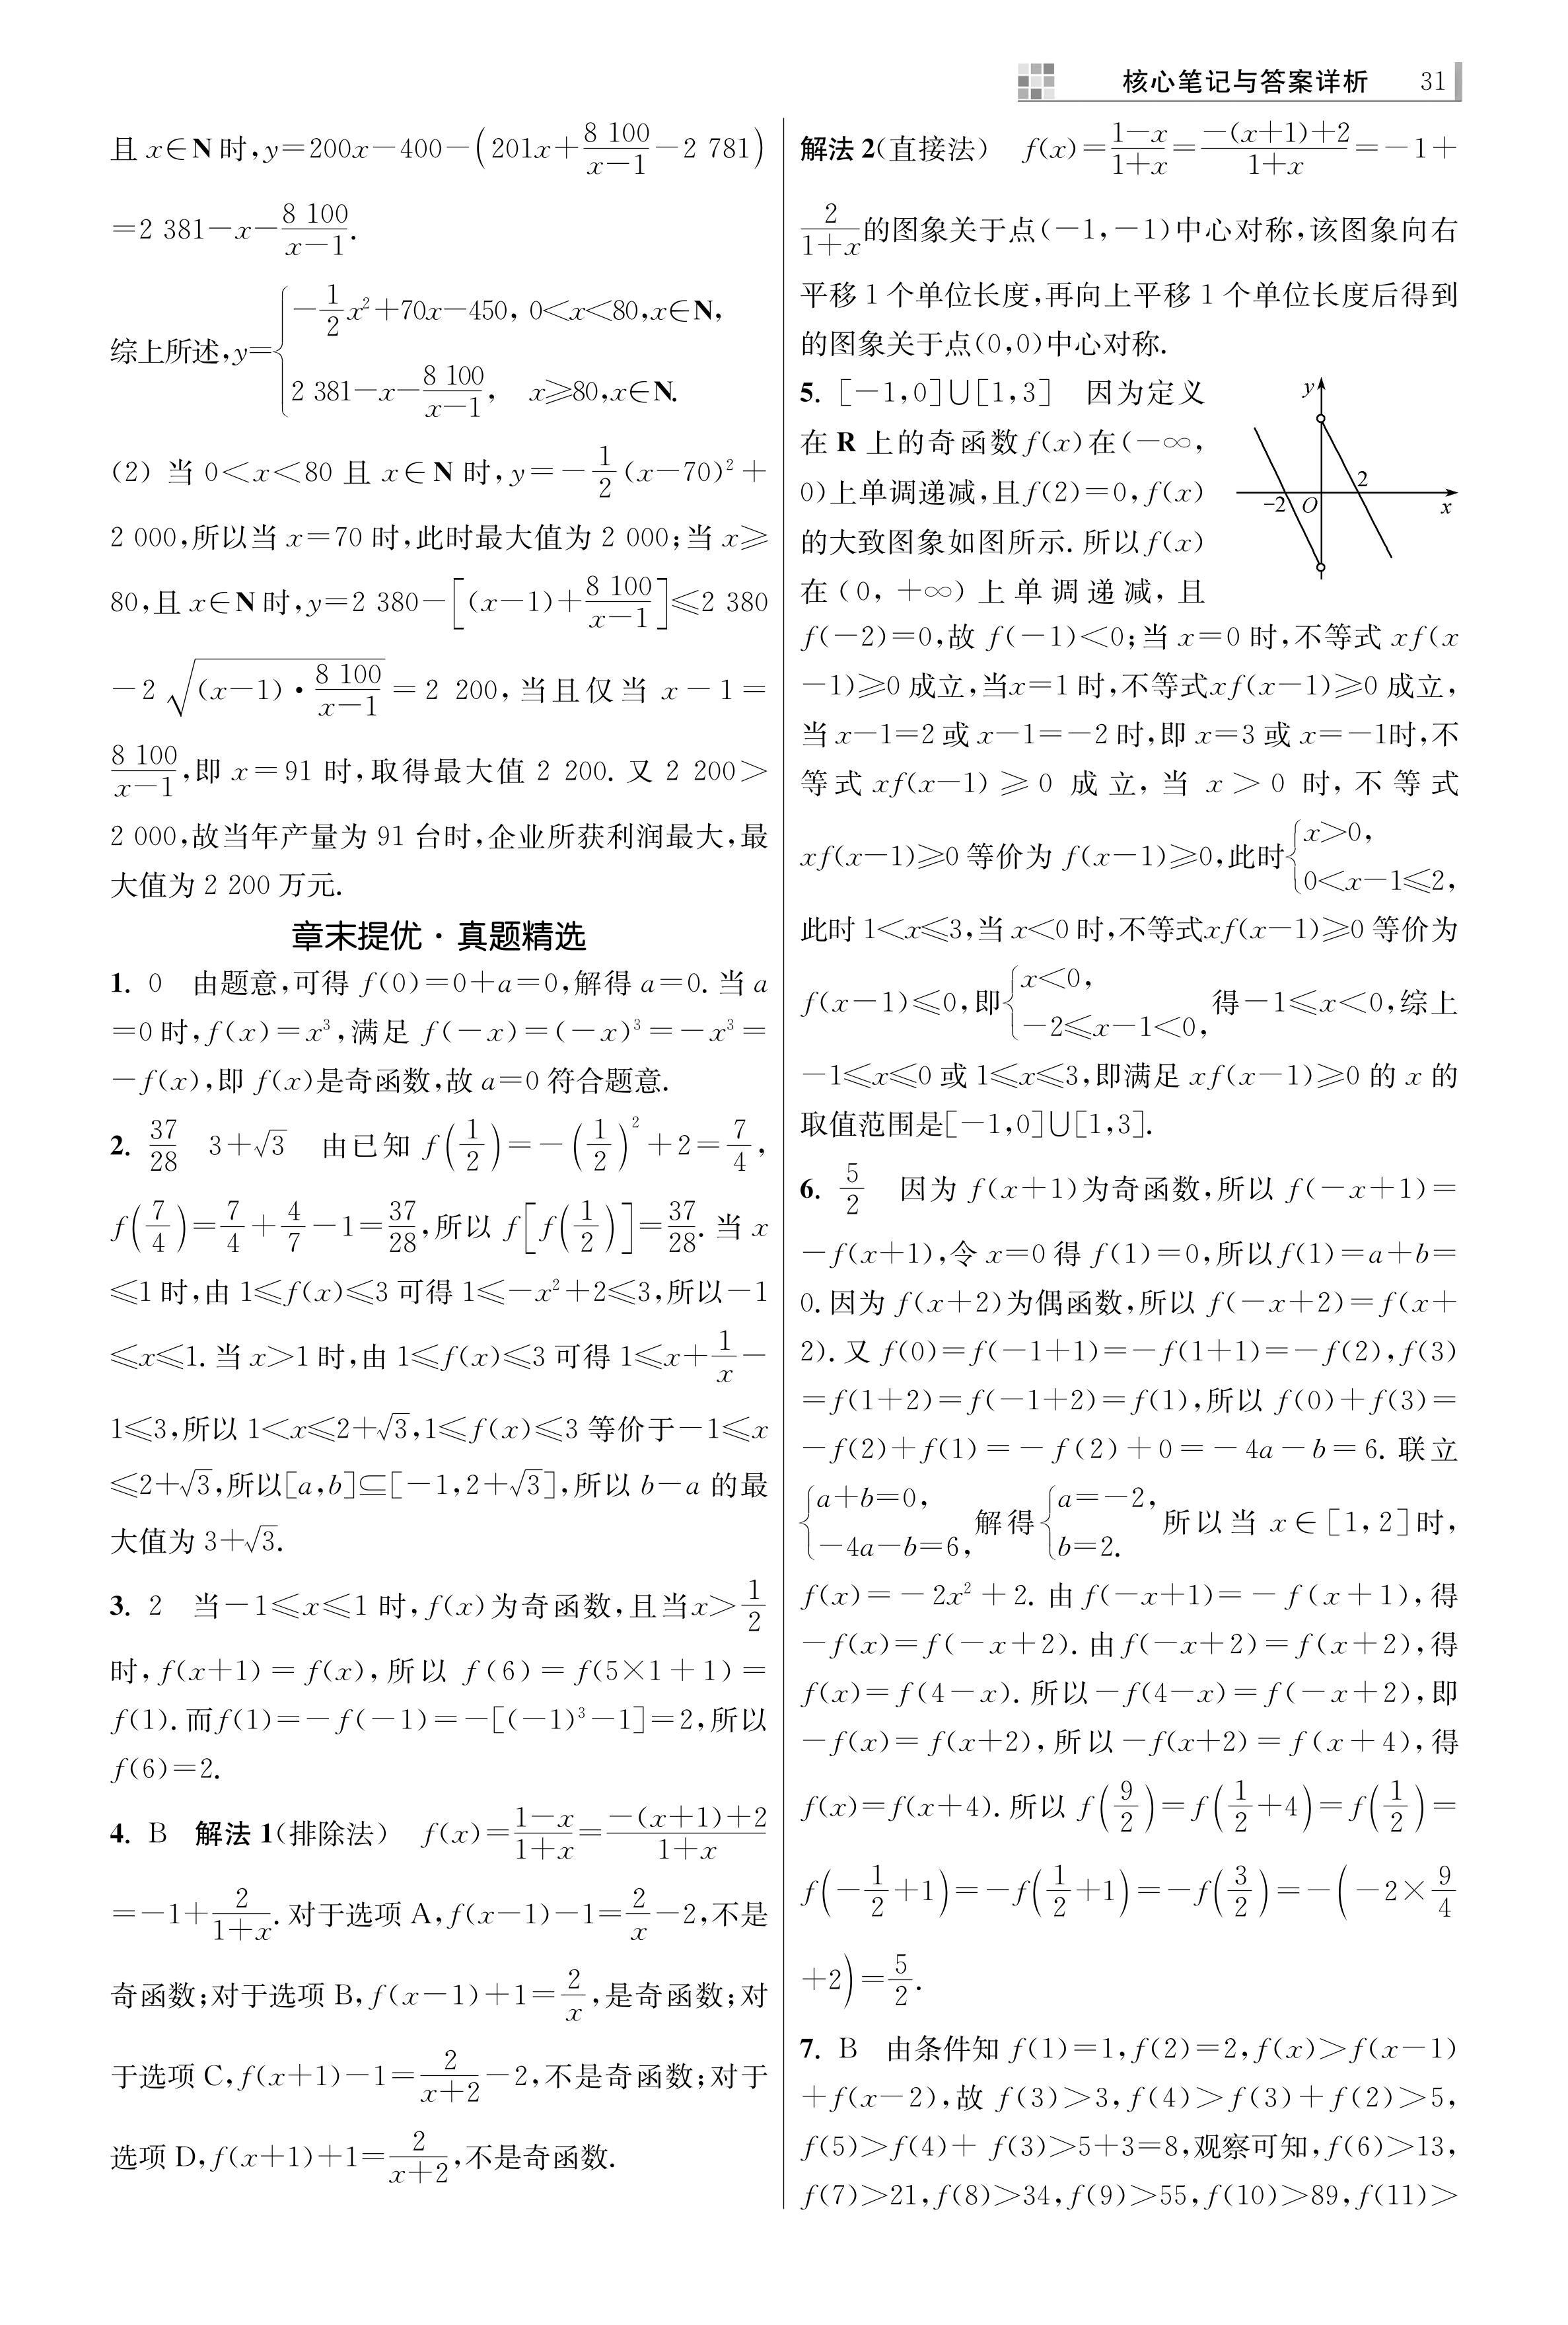 核心笔记与答案详析 31
且 x∈N 时,y=200x-400-(201x+\frac{8 100}{x-1}-2 781)
=2 381-x-\frac{8 100}{x-1}.
综上所述,y=\begin{cases}-\frac{1}{2}x^2+70x-450, 0<x<80,x∈N,\\2 381-x-\frac{8 100}{x-1}, x⩾80,x∈N.\end{cases}
(2) 当 0<x<80 且 x∈N 时,y=-\frac{1}{2}(x-70)^2+
2 000,所以当 x=70 时,此时最大值为 2 000;当 x⩾
80,且 x∈N 时,y=2 380-[(x-1)+\frac{8 100}{x-1}]⩽2 380
-2\sqrt{(x-1)·\frac{8 100}{x-1}}=2 200,当且仅当 x-1=
\frac{8 100}{x-1},即 x=91 时,取得最大值 2 200. 又 2 200>
2 000,故当年产量为 91 台时,企业所获利润最大,最
大值为 2 200 万元.
章末提优·真题精选
1. 0 由题意,可得 f(0)=0+a=0,解得 a=0. 当 a
=0 时,f(x)=x^3,满足 f(-x)=(-x)^3=-x^3=
-f(x),即 f(x)是奇函数,故 a=0 符合题意.
2. \frac{37}{28} 3+√3 由已知 f(\frac{1}{2})=-(\frac{1}{2})^2+2=\frac{7}{4},
f(\frac{7}{4})=\frac{7}{4}+\frac{4}{7}-1=\frac{37}{28},所以 f[f(\frac{1}{2})]=\frac{37}{28}. 当 x
⩽1 时,由 1⩽f(x)⩽3 可得 1⩽-x^2+2⩽3,所以-1
⩽x⩽1. 当 x>1 时,由 1⩽f(x)⩽3 可得 1⩽x+\frac{1}{x}-
1⩽3,所以 1<x⩽2+√3,1⩽f(x)⩽3 等价于-1⩽x
⩽2+√3,所以[a,b]⊆[-1,2+√3],所以 b-a 的最
大值为 3+√3.
3. 2 当-1⩽x⩽1 时,f(x)为奇函数,且当x>\frac{1}{2}
时,f(x+1)=f(x),所以 f(6)=f(5×1+1)=
f(1). 而f(1)=-f(-1)=-[(-1)^3-1]=2,所以
f(6)=2.
4. B 解法 1(排除法) f(x)=\frac{1-x}{1+x}=\frac{-(x+1)+2}{1+x}
=-1+\frac{2}{1+x}. 对于选项 A,f(x-1)-1=\frac{2}{x}-2,不是
奇函数;对于选项 B,f(x-1)+1=\frac{2}{x},是奇函数;对
于选项 C,f(x+1)-1=\frac{2}{x+2}-2,不是奇函数;对于
选项 D,f(x+1)+1=\frac{2}{x+2},不是奇函数.
解法 2(直接法) f(x)=\frac{1-x}{1+x}=\frac{-(x+1)+2}{1+x}=-1+
\frac{2}{1+x}的图象关于点(-1,-1)中心对称,该图象向右
平移 1 个单位长度,再向上平移 1 个单位长度后得到
的图象关于点(0,0)中心对称.
5. [-1,0]∪[1,3] 因为定义
在 R 上的奇函数 f(x)在(-∞,
0)上单调递减,且f(2)=0,f(x)
的大致图象如图所示. 所以 f(x)
在(0,+∞)上单调递减,且
y
2
-2 O x
f(-2)=0,故 f(-1)<0;当 x=0 时,不等式 xf(x
-1)⩾0 成立,当x=1 时,不等式xf(x-1)⩾0 成立,
当 x-1=2 或 x-1=-2 时,即 x=3 或 x=-1时,不
等式 xf(x-1)⩾0 成立,当 x>0 时,不等式
xf(x-1)⩾0 等价为 f(x-1)⩾0,此时\begin{cases}x>0,\\0<x-1⩽2,\end{cases}
此时 1<x⩽3,当 x<0 时,不等式xf(x-1)⩾0 等价为
f(x-1)⩽0,即\begin{cases}x<0,\\-2⩽x-1<0,\end{cases}得-1⩽x<0,综上
-1⩽x⩽0 或 1⩽x⩽3,即满足 xf(x-1)⩾0 的 x 的
取值范围是[-1,0]∪[1,3].
6. \frac{5}{2} 因为 f(x+1)为奇函数,所以 f(-x+1)=
-f(x+1),令 x=0 得 f(1)=0,所以 f(1)=a+b=
0. 因为 f(x+2)为偶函数,所以 f(-x+2)=f(x+
2). 又 f(0)=f(-1+1)=-f(1+1)=-f(2),f(3)
=f(1+2)=f(-1+2)=f(1),所以 f(0)+f(3)=
-f(2)+f(1)=-f(2)+0=-4a-b=6. 联立
\begin{cases}a+b=0,\\-4a-b=6,\end{cases}解得\begin{cases}a=-2,\\b=2.\end{cases}所以当 x∈[1,2]时,
f(x)=-2x^2+2. 由 f(-x+1)=-f(x+1),得
-f(x)=f(-x+2). 由 f(-x+2)=f(x+2),得
f(x)=f(4-x). 所以-f(4-x)=f(-x+2),即
-f(x)=f(x+2),所以-f(x+2)=f(x+4),得
f(x)=f(x+4). 所以 f(\frac{9}{2})=f(\frac{1}{2}+4)=f(\frac{1}{2})=
f(-\frac{1}{2}+1)=-f(\frac{1}{2}+1)=-f(\frac{3}{2})=-(-2×\frac{9}{4}
+2)=\frac{5}{2}.
7. B 由条件知 f(1)=1,f(2)=2,f(x)>f(x-1)
+f(x-2),故 f(3)>3,f(4)>f(3)+f(2)>5,
f(5)>f(4)+f(3)>5+3=8,观察可知,f(6)>13,
f(7)>21,f(8)>34,f(9)>55,f(10)>89,f(11)>